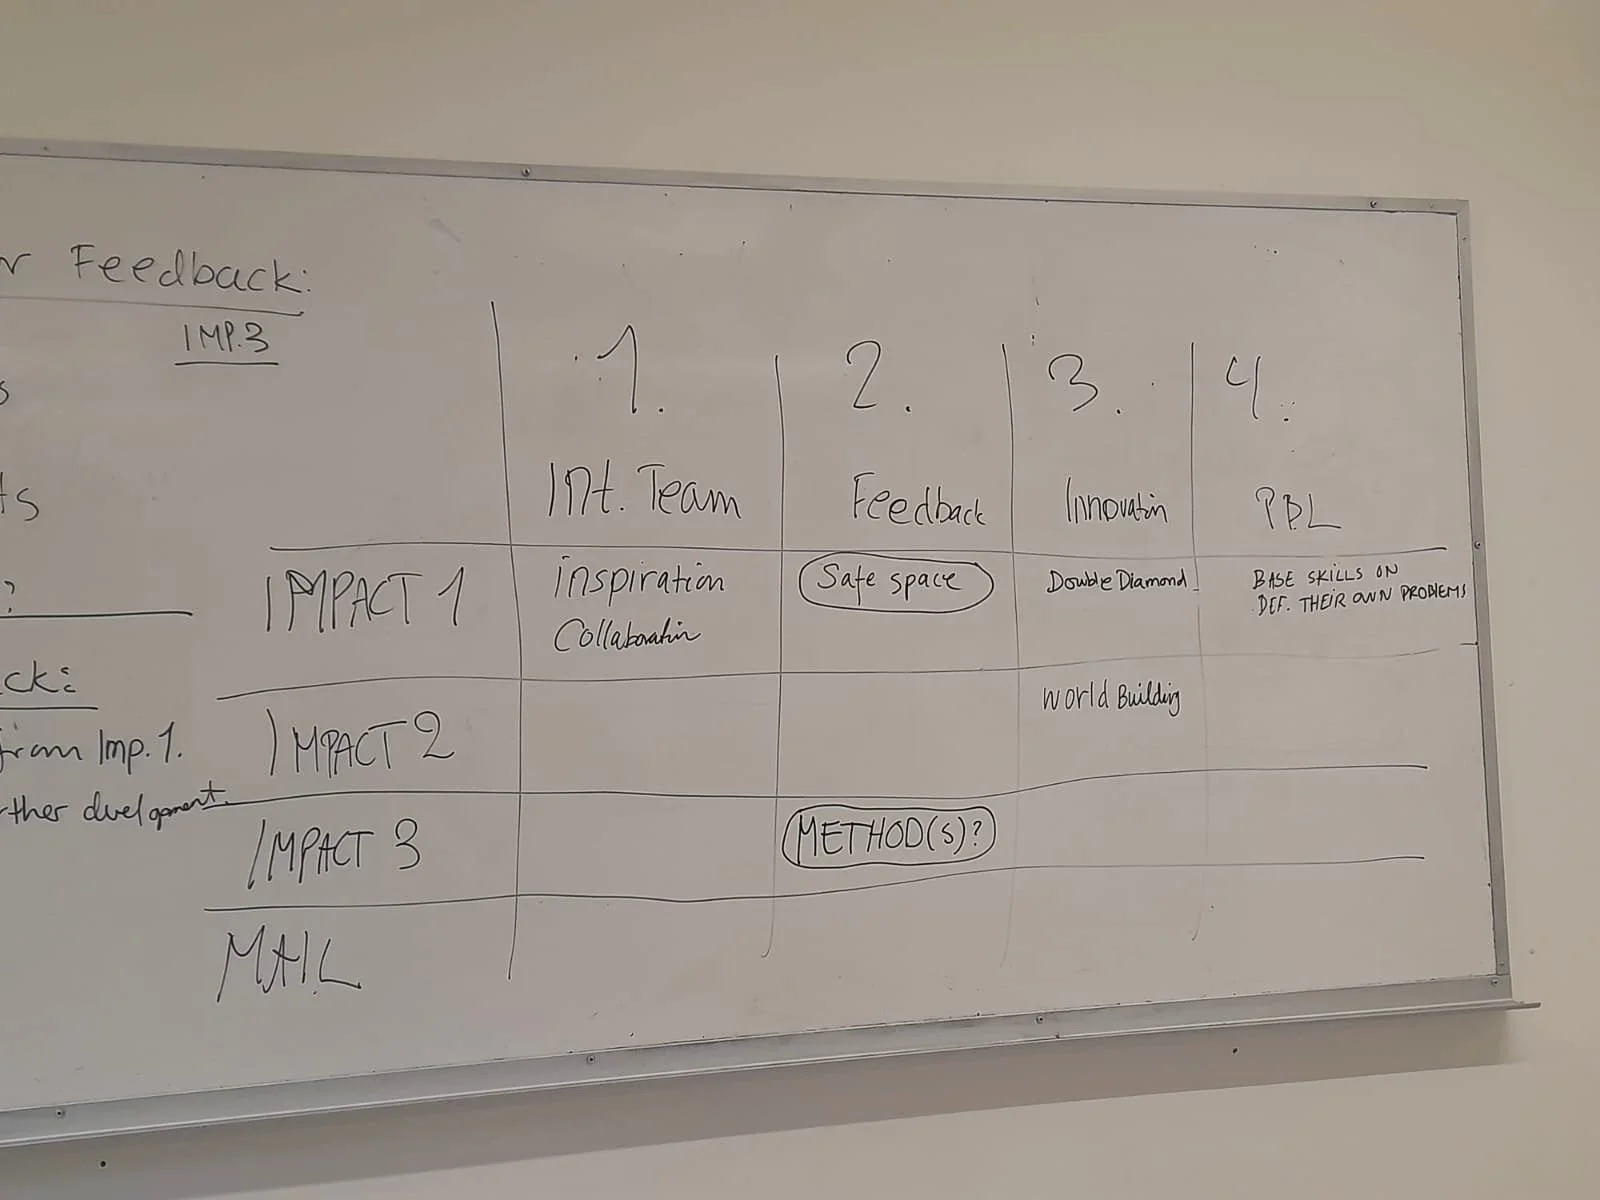 Feedback:
IMP.3
ts
?
ck:
from Imp. 1.
rther develgpment.
1. 2. 3. 4.
Int. Team Feedback Innovatin PBL
IMPACT 1 inspiration Safe space Double Diamond BASE SKILLS ON
Collaboratin DEF. THEIR OWN PROBLEMS
IMPACT 2 World Building
IMPACT 3 METHOD(S)?
MAIL